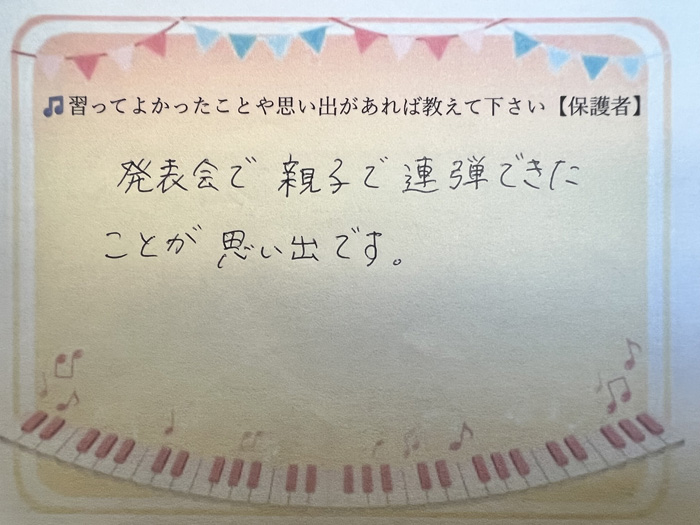 🎵習ってよかったことや思い出があれば教えて下さい【保護者】
発表会で 親子で 連弾できた
ことが 思い出です。